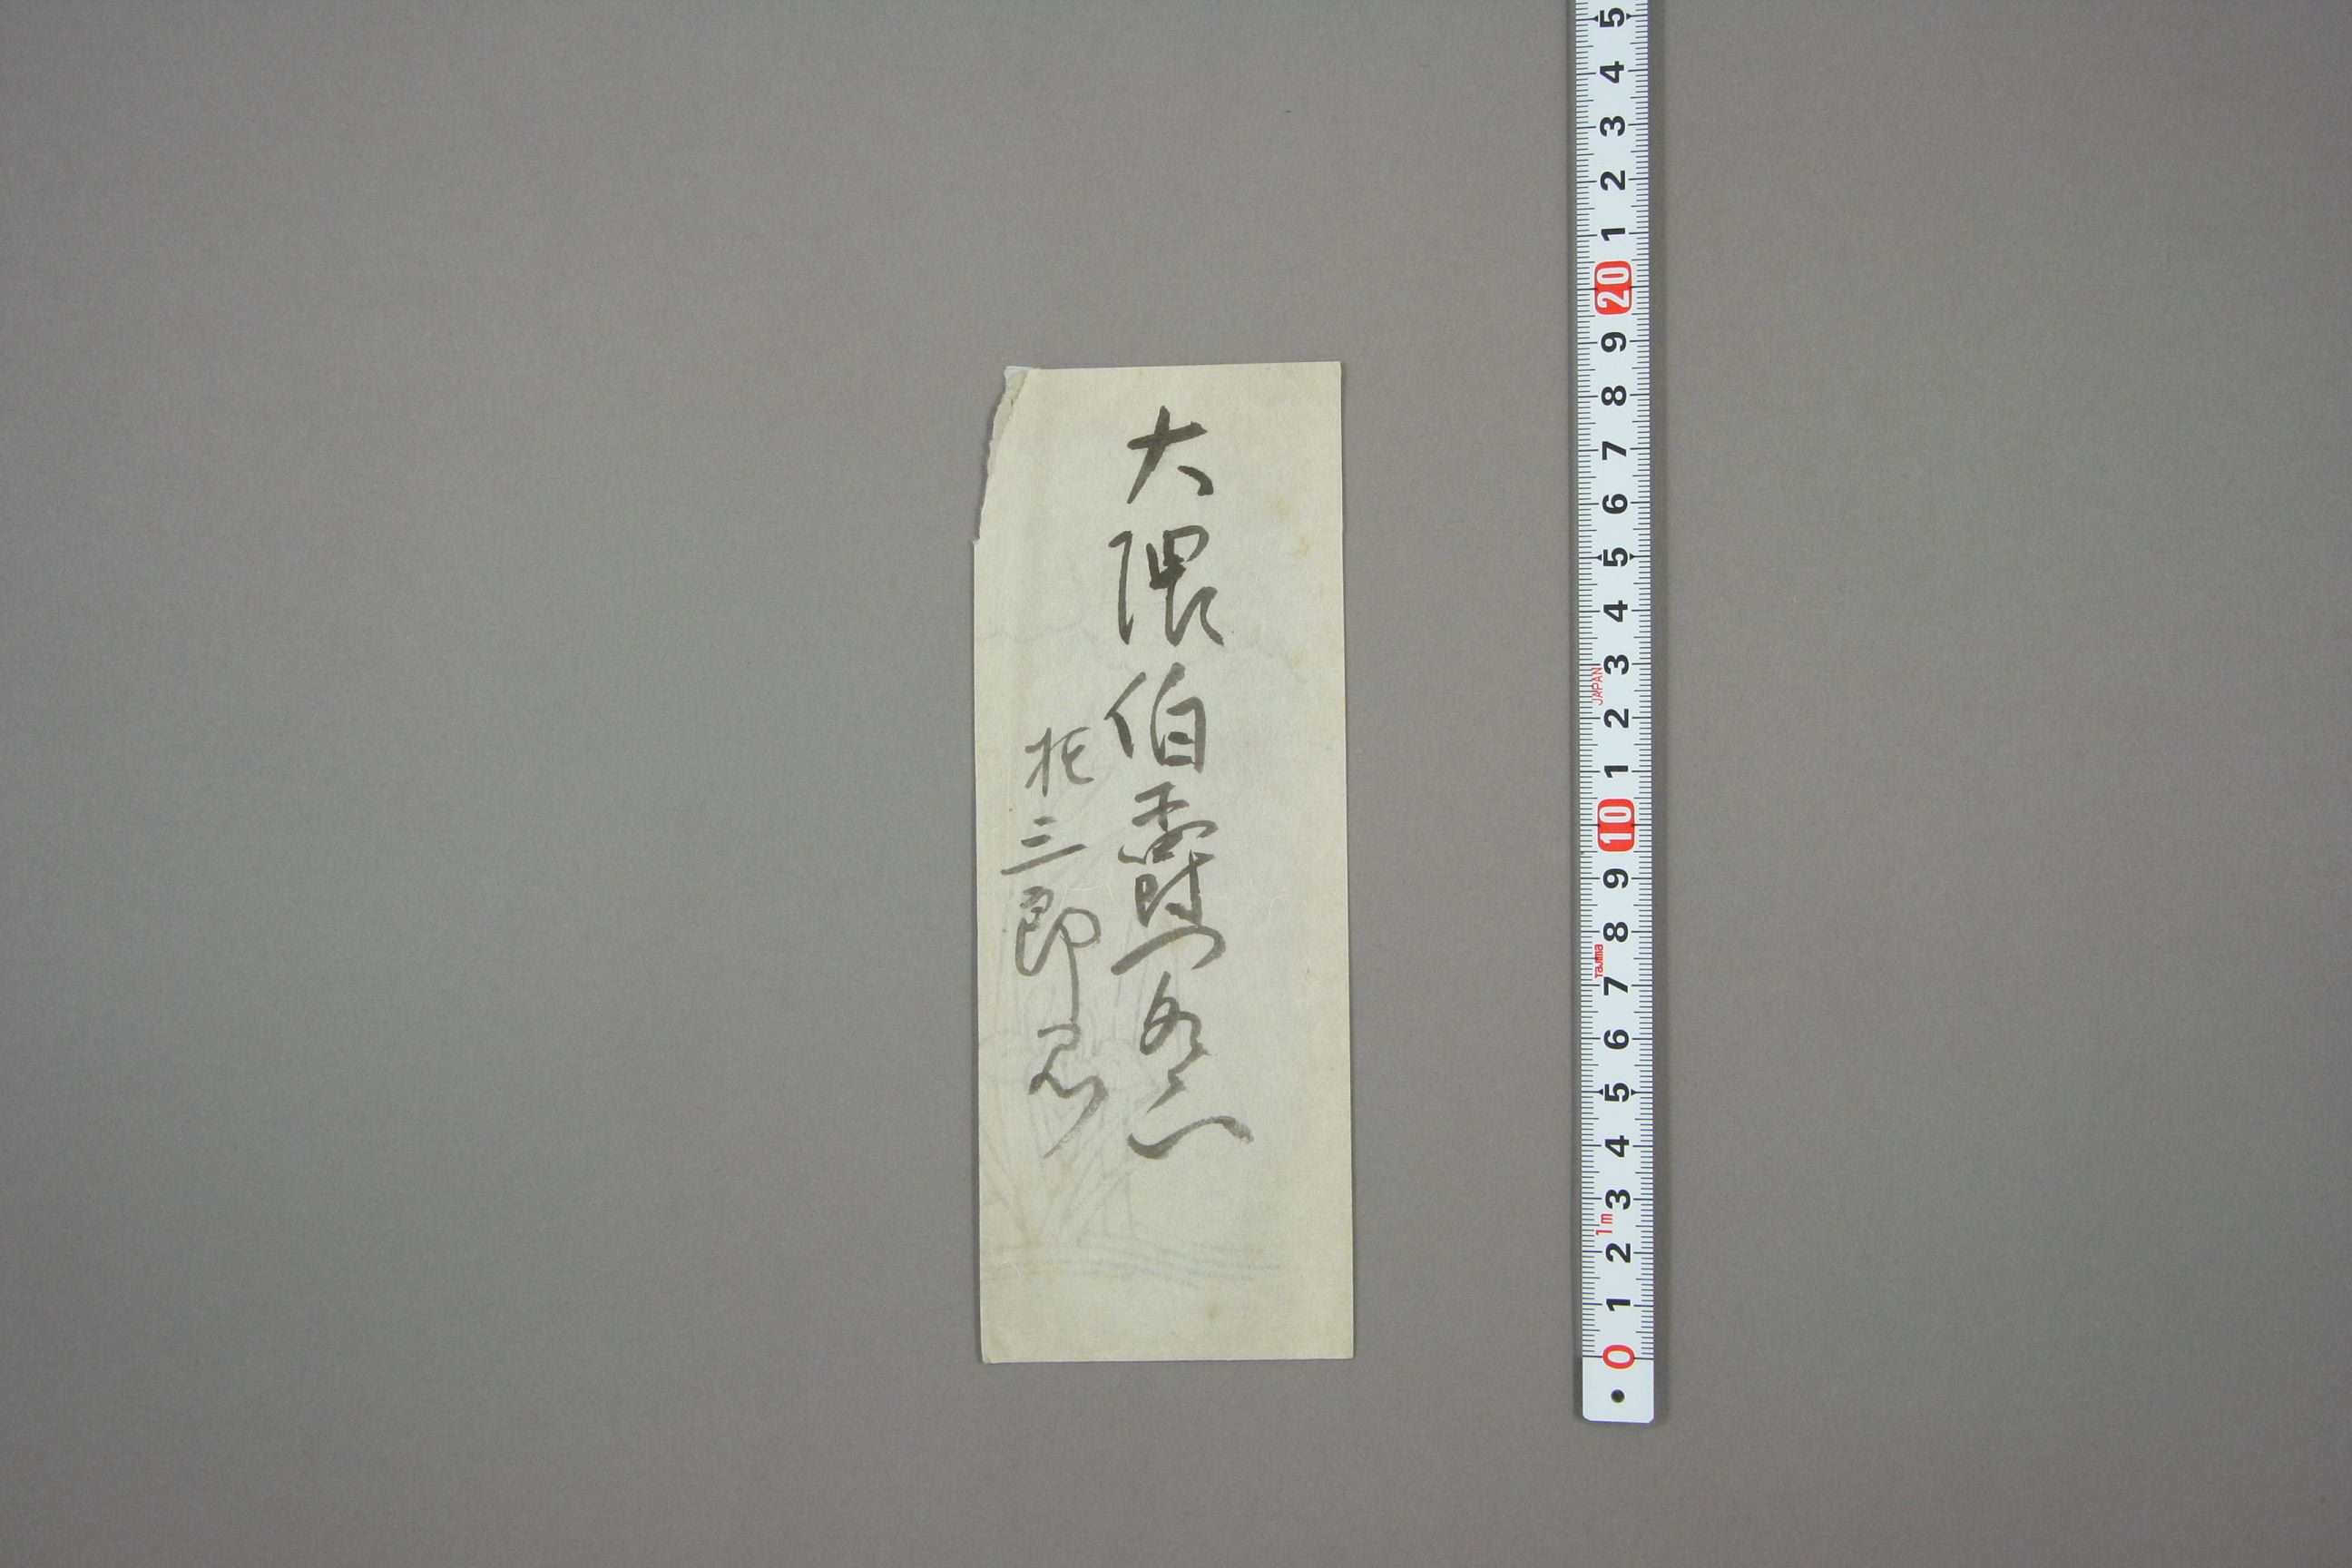 大隈伯爵閣下
托三郎
5
4
3
2
1
20
9
8
7
6
5
4
3
JAPAN
2
1
10
9
8
Tajima
7
6
5
4
3
1m
2
1
0